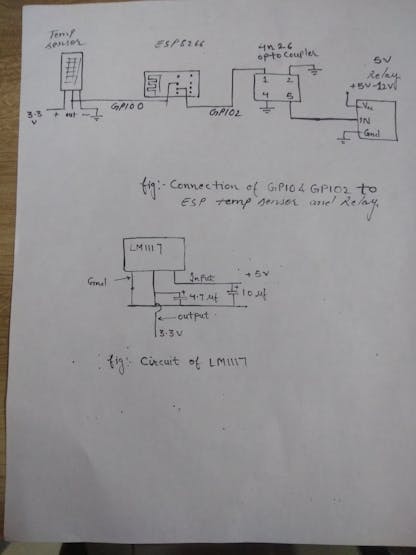 Temp sensor
ESP8266
4n26
optocoupler
5V
Relay
+5V-12V
1 2
4 5
Vcc
IN
Gnd
3.3
V
+ out -
GPIO0
GPIO2
fig:- Connection of GPIO & GPIO2 to
ESP temp sensor and Relay
LM1117
Gnd
Input
+5V
4.7 uf
10 uf
output
3.3V
fig:- Circuit of LM1117